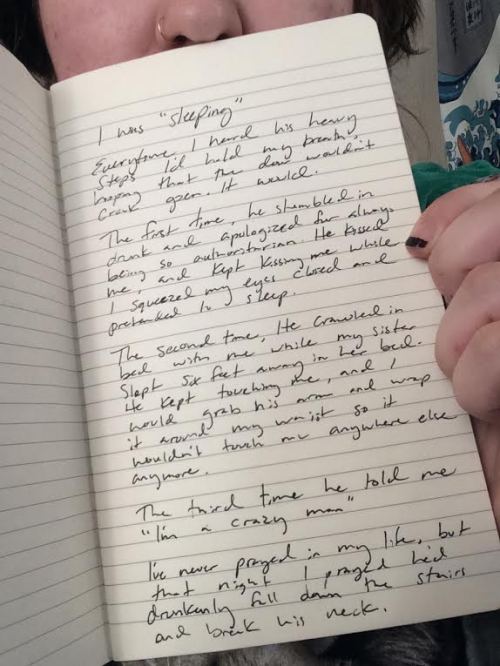 I was "sleeping"
Everytime I heard his heavy
steps I'd hold my breath,
hoping that the door wouldn't
crack open. It would.
The first time, he stumbled in
drunk and apologized for always
being so authoritarian. He kissed
me, and kept kissing me while
I squeezed my eyes closed and
pretended to sleep.
The second time, He crawled in
bed with me while my sister
slept six feet away in her bed.
He kept touching me, and I
would grab his arm and wrap
it around my waist so it
wouldn't touch me anywhere else
anymore.
The third time he told me
"I'm a crazy man"
I've never prayed in my life, but
that night I prayed he'd
drunkenly fall down the stairs
and break his neck.